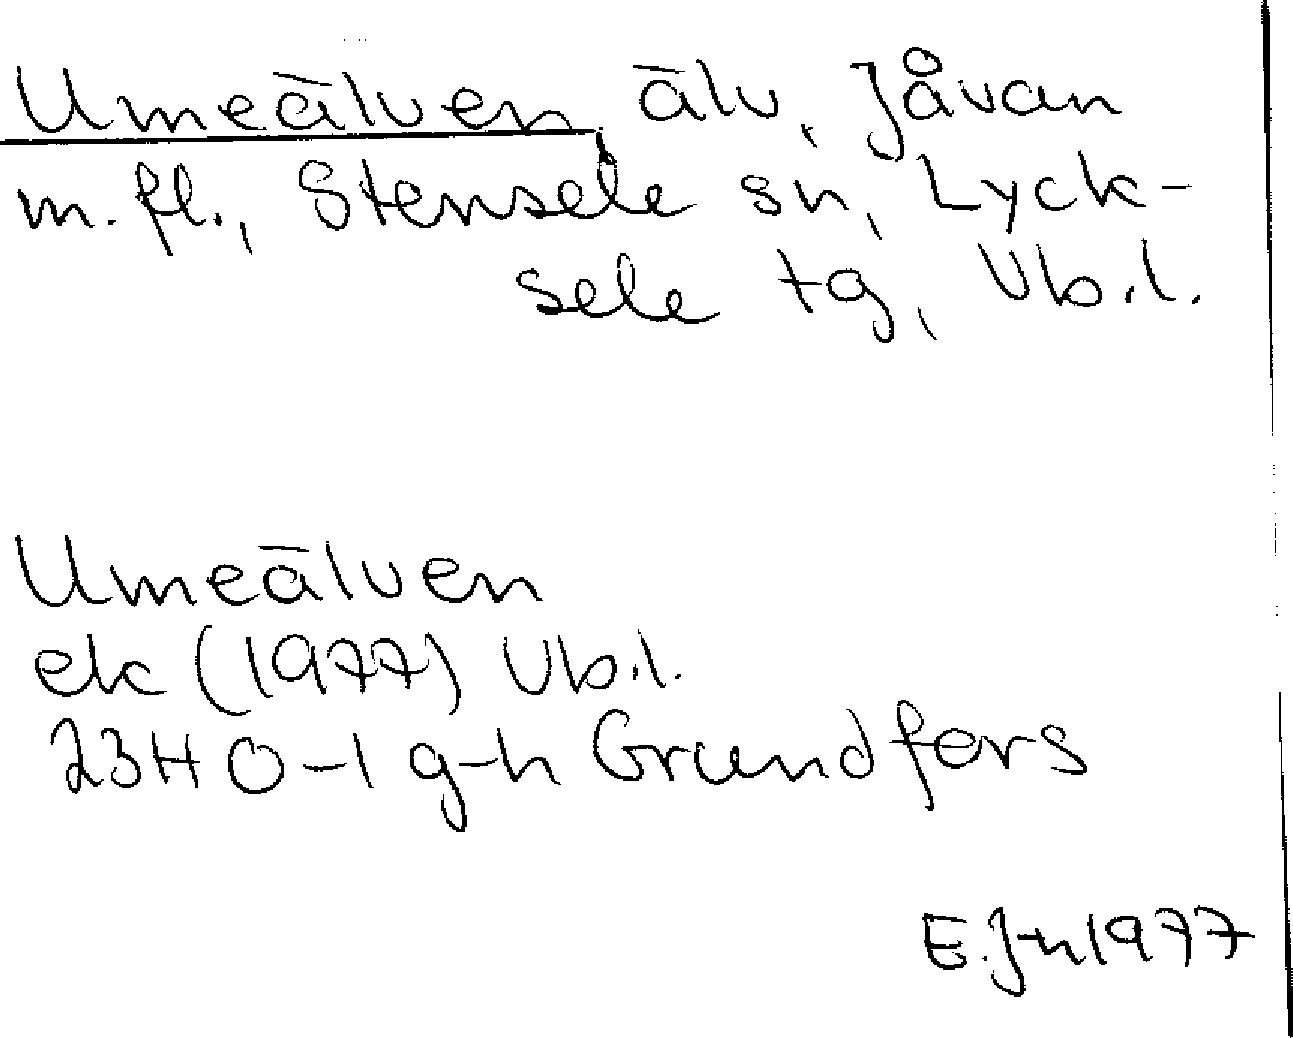 Umeälven, älv, Jåvan
m.fl., Stensele sn, Lyck-
sele tg, Vb.l.
Umeälven
ek (1977) Vb.l.
23H 0-1 g-h Grundfors
E.J-n 1977